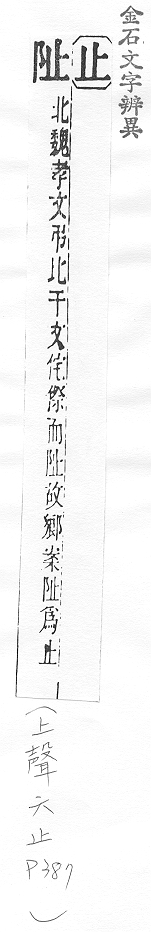 金石文字辨異
【止】
阯 北魏孝文弔比干文侘傺而阯故鄉案阯爲止
(上聲六止 P387)